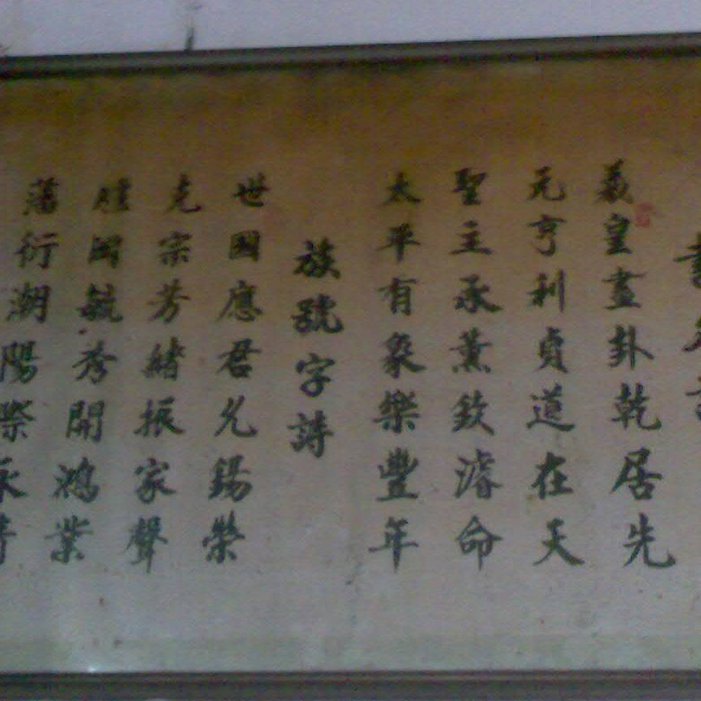 書名詩
羲皇畫卦乾居先
元亨利貞道在天
聖主承薰欽濬命
太平有象樂豐年
族號字詩
世國應君允錫榮
克宗芳緒振家聲
岡毓秀開鴻業
藩衍潮陽際永